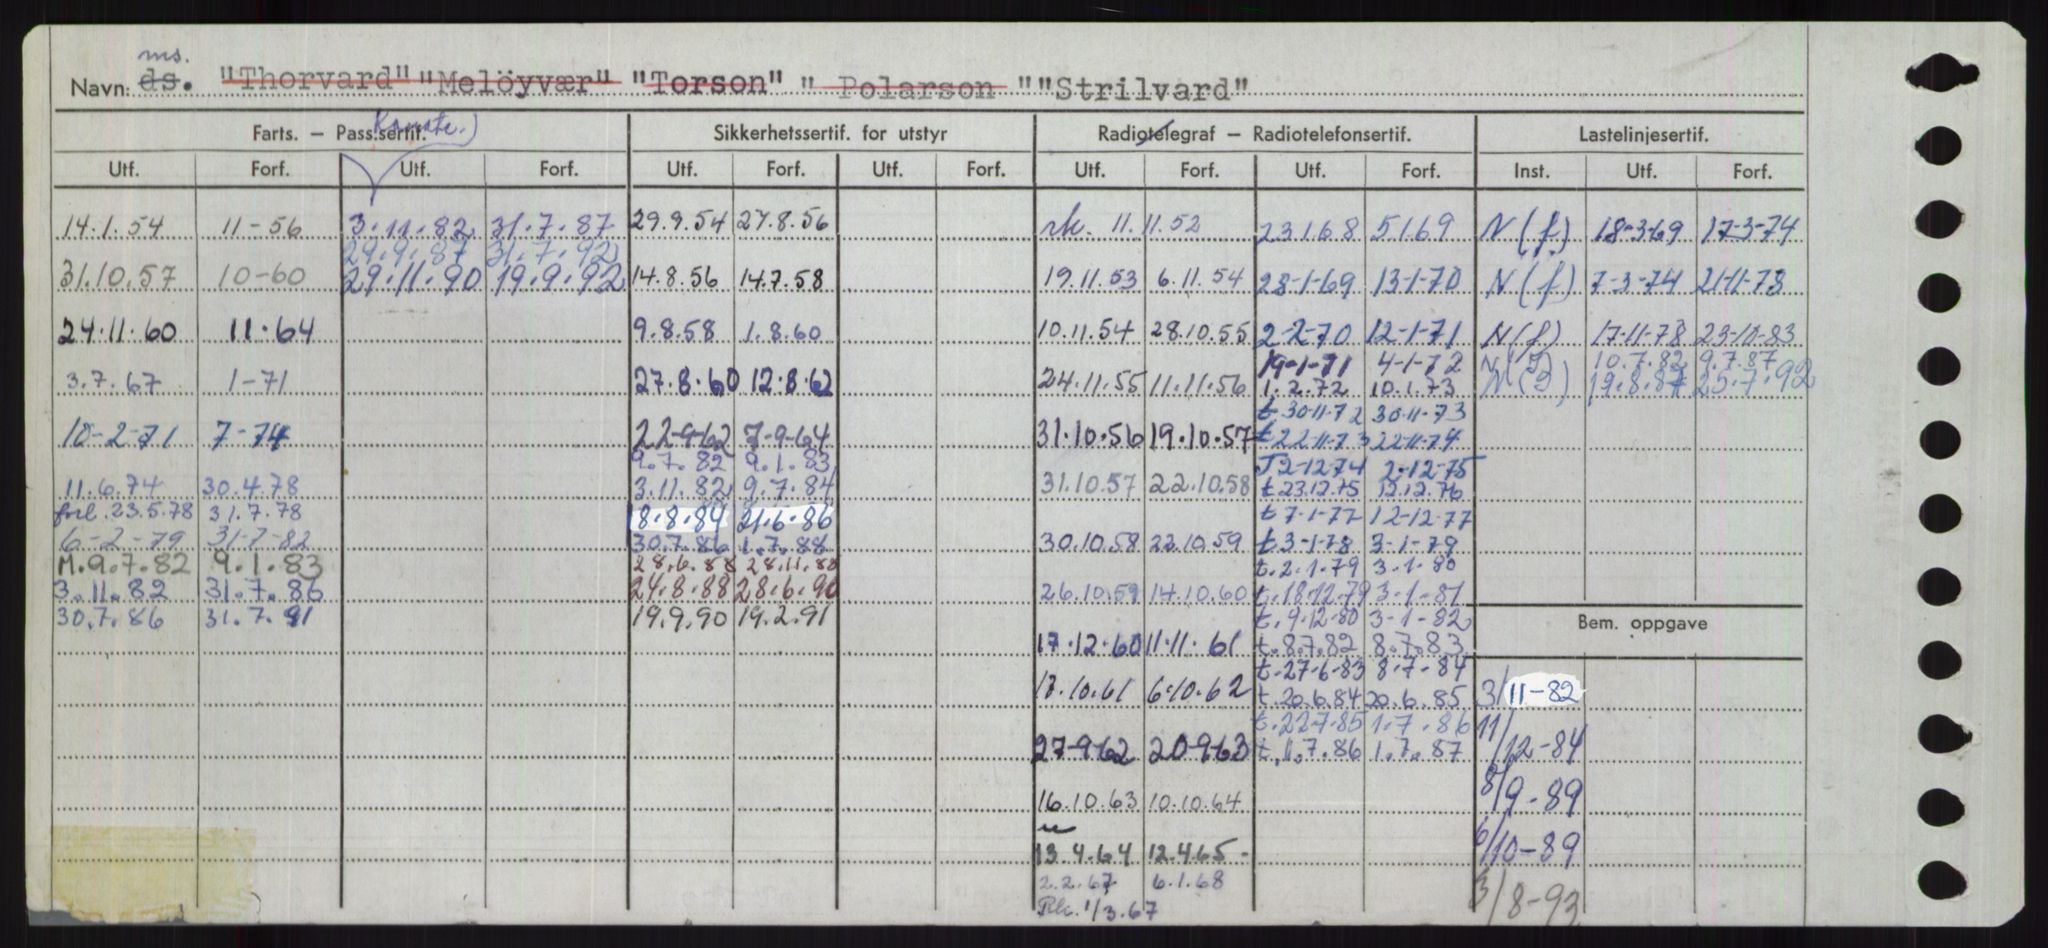 ms.
Navn: ds. "Thorvard" "Melöyvær" "Torson" " Polarson " "Strilvard"
Farts. – Pass.sertif. Sikkerhetssertif. for utstyr Radiotelegraf – Radiotelefonsertif. Lastelinjesertif.
Utf. Forf. Utf. Forf. Utf. Forf. Utf. Forf. Utf. Forf. Utf. Forf. Inst. Utf. Forf.
14.1.54 11-56 3.11.82 31.7.87 29.9.54 27.8.56 rk. 11.11.52 23168 5169 N (f) 18-3-69 17-3-74
29.9.87 31.7.92
31.10.57 10-60 29.11.90 19.9.92 14.8.56 14.7.58 19.11.53 6.11.54 28-1-69 13-1-70 N (f) 7-3-74 21-11-78
24.11.60 11.64 9.8.58 1.8.60 10.11.54 28.10.55 2-2-70 12-1-71 N (f) 17-11-78 23-10-83
19-1-71 4-1-72 10.7.82 9.7.87
3.7.67 1-71 27.8.60 12.8.62 24.11.55 11.11.56 1.2.72 10.1.73 19.8.87 25.7.92
t. 30-11-72 30-11-73
10-2-71 7-74 22-9-62 7-9-64 31.10.56 19.10.57 t 22-11-73 22-11-74
9.7.82 9.1.83 T 2-12-74 2-12-75
11.6.74 30.4.78 3.11.82 9.7.84 31.10.57 22.10.58 t. 23.12.75 12.12.76
forl. 23.5.78 31.7.78 8.8.84 21.6.86 t 7-1-77 12-12-77
6-2-79 31-7-82 30.7.86 1.7.88 30.10.58 22.10.59 t. 3-1-78 3-1-79
M. 9.7.82 9.1.83 28.6.88 28.11.88 t. 2.1.79 3.1.80
3.11.82 31.7.86 24.8.88 28.6.90 26.10.59 14.10.60 t. 18-12-79 3-1-81
30.7.86 31.7.91 19.9.90 19.2.91 t. 9.12.80 3-1-82
Bem. oppgave
17.12.60 11.11.61 t. 8.7.82 8.7.83
t. 27-6-83 8-7-84
13.10.61 6.10.62 t. 20.6.84 20.6.85 3/11-82
t. 22.7.85 1.7.86
27-9-62 20-9-63 t. 1.7.86 1.7.87 11/12-84
16.10.63 10.10.64 8/9-89
13.4.64 12.4.65 - 6/10-89
2.2.67 6.1.68
Rk. 1/3.67 3/8-93